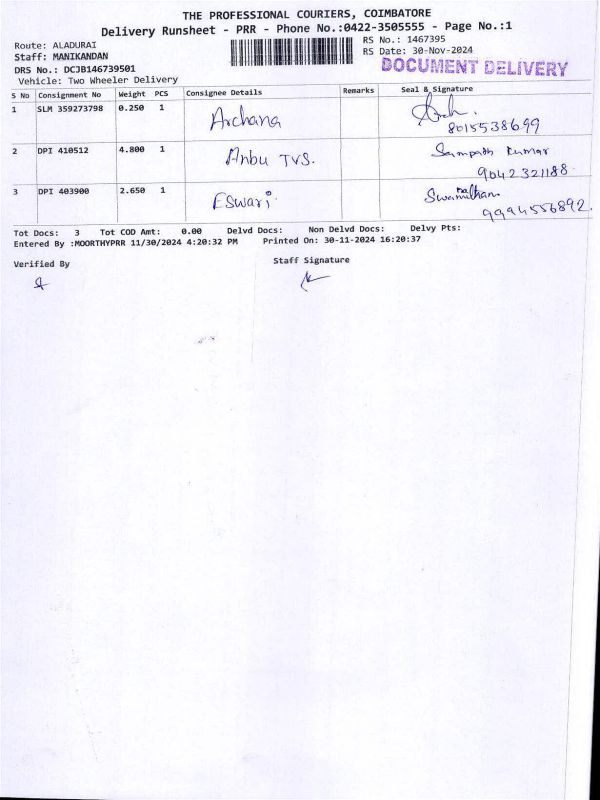 THE PROFESSIONAL COURIERS, COIMBATORE
Delivery Runsheet - PRR - Phone No.:0422-3505555 - Page No.:1
Route: ALADURAI RS No.: 1467395
Staff: MANIKANDAN RS Date: 30-Nov-2024
DRS No.: DCJB146739501 DOCUMENT DELIVERY
Vehicle: Two Wheeler Delivery
S No Consignment No Weight PCS Consignee Details Remarks Seal & Signature
1 SLM 359273798 0.250 1 Archana
8015538699
2 DPI 410512 4.800 1 Anbu TVS. Sampath Kumar
9042321188
3 DPI 403900 2.650 1 ESwari
9994556892
Tot Docs: 3 Tot COD Amt: 0.00 Delvd Docs: Non Delvd Docs: Delvy Pts:
Entered By :MOORTHYPRR 11/30/2024 4:20:32 PM Printed On: 30-11-2024 16:20:37
Verified By Staff Signature